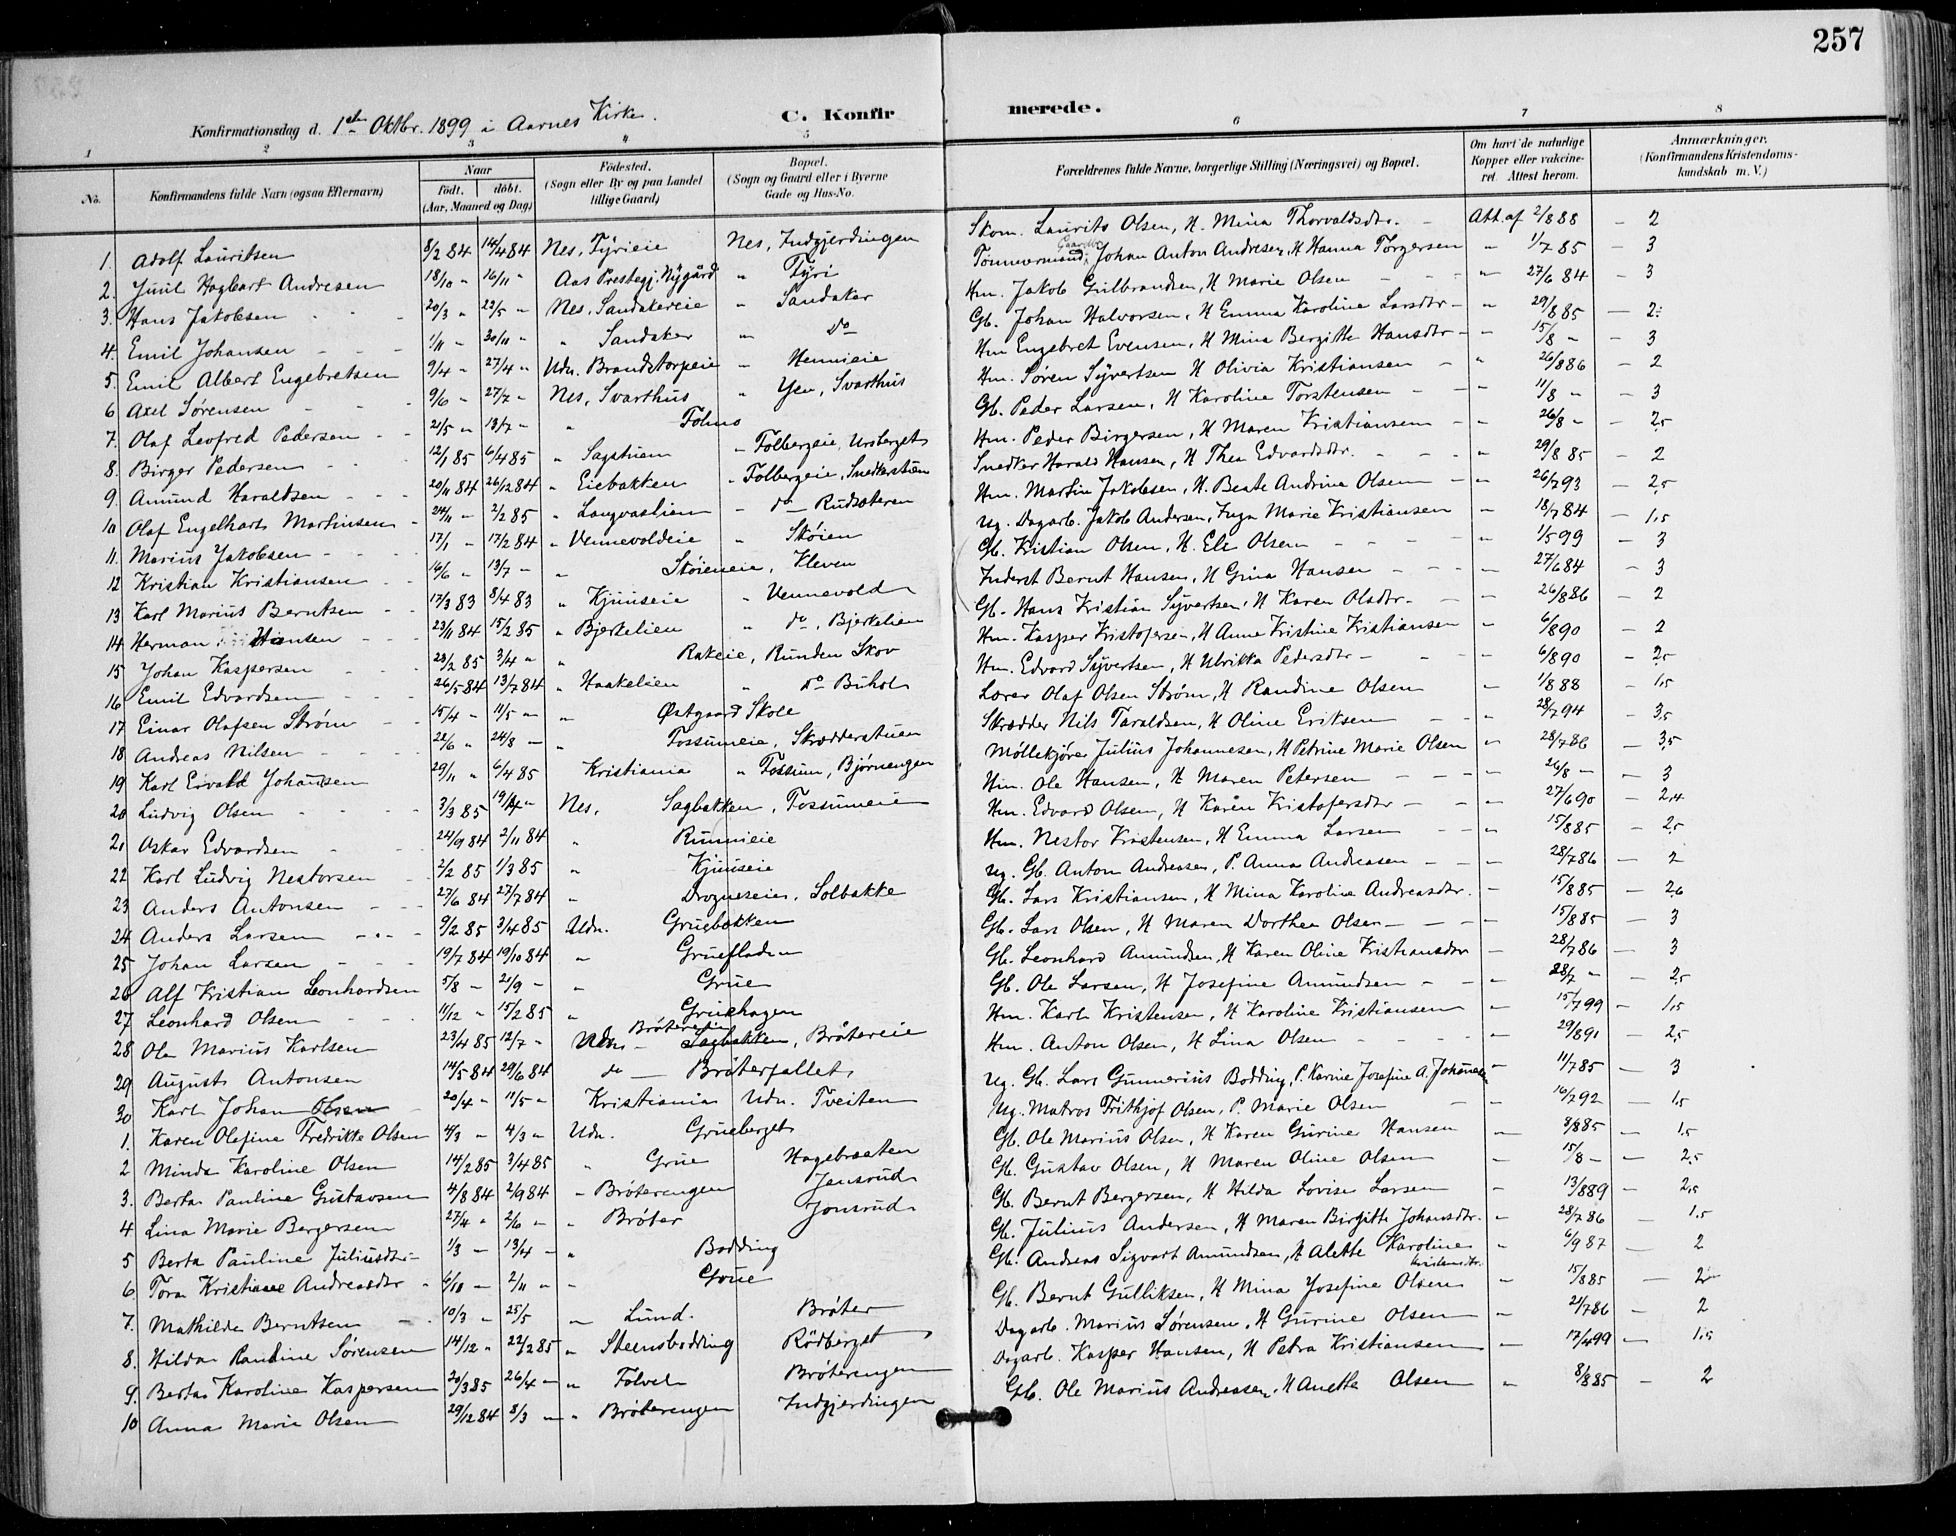 257
Konfirmationsdag d. 1ste Oktbr. 1899 i Aarnes Kirke.
C. Konfirmerede.
1 2 3 4 5 6 7 8
No. Konfirmandens fulde Navn (ogsaa Efternavn) Naar födt. döbt. (Aar, Maaned og Dag) Födested. (Sogn eller By og paa Landet tillige Gaard) Bopæl. (Sogn og Gaard eller i Byerne Gade og Hus-No. Forældrenes fulde Navne, borgerlige Stilling (Næringsvei) og Bopæl. Om havt de naturlige Kopper eller vakcineret. Attest herom. Anmærkninger. (Konfirmandens Kristendomskundskab m. V.)
1. Adolf Lauritsen 8/2 84 14/4 84 Nes, Fyrieie Nes, Indgjerdingen Skom. Laurits Olsen, H. Mina Thorvaldsdtr. Att. af 2/8 88 - 2
2. Juul Hagbart Andresen 18/10 " 16/11 " Aas Prestegj. Nygård " Fyri Tømmermand, Gaardbr. Johan Anton Andresen, H Hanna Torgersen " 1/7 85 - 3
3. Hans Jakobsen 20/3 " 22/5 " Nes, Sandakereie " Sandaker Hm. Jakob Gulbrandsen, H Marie Olsen " 27/6 84 - 3
4. Emil Johansen 1/11 " 30/11 " " Sandaker " do Gb. Johan Halvorsen, H Emma Karoline Larsdtr " 29/8 85 - 2
5. Emil Albert Engebretsen 9/4 " 27/4 " Udn. Brandstorpeie " Hennieie Hm Engebret Evensen, H Mina Bergitte Hansdtr " 15/8 " - 3
6 Axel Sørensen 9/6 " 27/7 " Nes, Svarthus " Yse, Svarthus Hm. Søren Syvertsen H Olivia Kristiansen " 26/8 86 - 2
7. Olaf Leofred Pedersen 21/5 " 13/7 " " Folmo Gb. Peder Larsen, H Karoline Torstensen " 11/8 " - 3
8. Birger Pedersen 12/1 85 6/4 85 " Sagstuen " Folbergeie, Ursberget Hm. Peder Birgersen, H Maren Kristiansen " 26/8 " - 2,5
9. Amund Haraldsen 20/11 84 26/12 84 " Eiebakken " Folbergeie, Snekkerstuen Snedker Harald Hansen, H Thea Edvardsdtr. " 29/8 85 - 2
10 Olaf Engelhart Martinsen 24/11 " 2/2 85 " Langvaslien " do Rudskeren Hm. Martin Jakobsen, H. Beate Andrine Olsen " 26/7 93 - 2,5
11. Marius Jakobsen 17/1 " 17/2 84 " Vennevoldeie " Skøien Ug. Dagarb. Jakob Andersen, Inga Marie Kristiansen " 18/7 84 - 1,5
12 Kristian Kristiansen 16/6 " 13/7 " " Skøieneie, Kleven Gb. Kristian Olsen, H. Eli Olsen " 1/5 99 - 3
13 Karl Marius Berntsen 17/3 83 8/4 83 " Kjuuseie " Vennevold Inderst Bernt Hansen, H Gina Hansen " 27/6 84 - 3
14 Herman Hansen 23/11 84 15/2 85 " Bjerkelien " do, Bjerkelien Gb. Hans Kristian Syvertsen, H Karen Olsdtr. " 26/8 86 - 2
15 Johan Kaspersen 23/2 85 3/4 " " Rakeie, Runden Skov Hm. Kasper Kristofersen, H Anne Kristine Kristiansen " 6/8 90 - 2
16 Emil Edvardsen 26/5 84 13/7 84 " Haakelien " do Buhol Hm. Edvard Syvertsen, H Ulrikka Pedersdtr " 6/8 90 - 2,5
17 Einar Olafsen Strøm 15/4 " 11/5 " " Østgaard Skole Lærer Olaf Olsen Strøm, H Randine Olsen " 1/8 88 - 1,5
18 Andreas Nilsen 22/6 " 24/8 " " Fossumeie, Skrædderstuen Skrædder Nils Taraldsen, H Oline Eriksen " 28/7 94 - 3,5
19 Karl Ervald Johansen 29/11 " 6/4 85 Kristiania " Fossum, Bjørnengen Møllekjører Julius Johannesen, H Petrine Marie Olsen " 28/7 86 - 3,5
20 Ludvig Olsen 3/3 85 19/4 " Nes, Sagbakken, Fossumeie Hm. Ole Hansen, H Maren Petersen " 26/8 " - 3
21 Oskar Edvardsen 24/9 84 2/11 84 " Runnieie Hm. Edvard Olsen, H Karen Kristofersdtr " 27/6 90 - 2,4
22 Karl Ludvig Nestorsen 2/2 85 1/3 85 " Kjuuseie Hm. Nestor Kristensen, H Emma Larsen " 15/8 85 - 2,5
23 Anders Antonsen 27/6 84 27/7 84 " Drogneseie, Solbakke Ug. Gb. Anton Andreasen, P. Anna Andreasen " 28/7 86 - 2
24 Anders Larsen 9/2 85 3/4 85 Udn. Gruebakken Gb. Lars Kristiansen, H Mina Karoline Andreasdtr. " 15/8 85 - 2,6
25 Johan Larsen 19/7 84 19/10 84 " Grueflaten Gb. Lars Olsen, H Maren Dorthea Olsen " 15/8 85 - 3
26 Alf Kristian Leonhardsen 5/8 " 21/9 " " Grue Gb. Leonhard Amundsen, H Karen Oline Kristiansdtr " 28/7 86 - 3
27 Leonhard Olsen 11/12 " 15/2 85 " Gruehagen Gb. Ole Larsen, H Josefine Amundsen " 28/7 " - 2,5
28 Ole Marius Karlsen 23/4 85 12/7 " Udn. Brøtereie Sagbakken, Brøtereie Hm. Karl Kristensen, H Karoline Kristiansen " 15/7 99 - 1,5
29 August Antonsen 14/5 84 29/6 84 do Brøterfallet Hm. Anton Olsen, H Lina Olsen " 29/8 91 - 2,5
30 Karl Johan Olsen 20/4 " 11/5 " Kristiania Udn. Tveiten Ug. Gb. Lars Gunnerius Bodding, P. Karine Josefine A. Johannesen " 11/7 85 - 3
1. Karen Olefine Fredrikke Olsen 4/3 " 4/3 " Udn. Grueberget Ug. Matros Frithjof Olsen, P. Marie Olsen " 16/7 92 - 1,5
2 Minda Karoline Olsen 14/2 85 3/4 85 " Grue Hagebraaten Gb. Ole Marius Olsen, H Karen Gurine Hansen " 8/8 85 - 1,5
3. Berta Pauline Gustavsen 4/8 84 2/9 84 " Brøterengen Jonsrud Gb. Gustav Olsen, H Maren Oline Olsen " 15/8 " - 2,5
4 Lina Marie Bergersen 27/4 " 2/6 " " Brøter Jonsrud Gb. Bernt Bergersen, H Hilda Lovise Larsen " 13/8 89 - 2,5
5 Berta Pauline Juliusdtr 1/3 " 13/4 " " Bodding Gb. Julius Andersen, H Maren Birgitte Johansdtr. " 28/7 86 - 1,5
6 Tora Kristiane Andreasdtr 6/10 " 2/11 " " Grue Gb. Andreas Sigvart Amundsen, H Alette Karoline Kristensdtr. " 6/9 87 - 2
7. Mathilde Berntsen 10/3 " 25/5 " Lund. Brøter Gb. Bernt Gulliksen, H Mina Josefine Olsen " 15/8 85 - 2
8. Hilda Randine Sørensen 14/12 " 22/2 85 " Steensbodding Rödberget Dagarb. Marius Sørensen, H Gurine Olsen " 21/7 86 - 2
9. Berta Karoline Kaspersen 20/3 85 26/4 " " Tolvet Brøterengen Dagarb. Kasper Hansen, H Petra Kristiansen " 17/4 99 - 1,5
10 Anna Marie Olsen 29/12 84 8/3 " " Brøterengen Indgjerdingen Gb. Ole Marius Andreasen, H Anette Olsen " 8/8 85 - 2